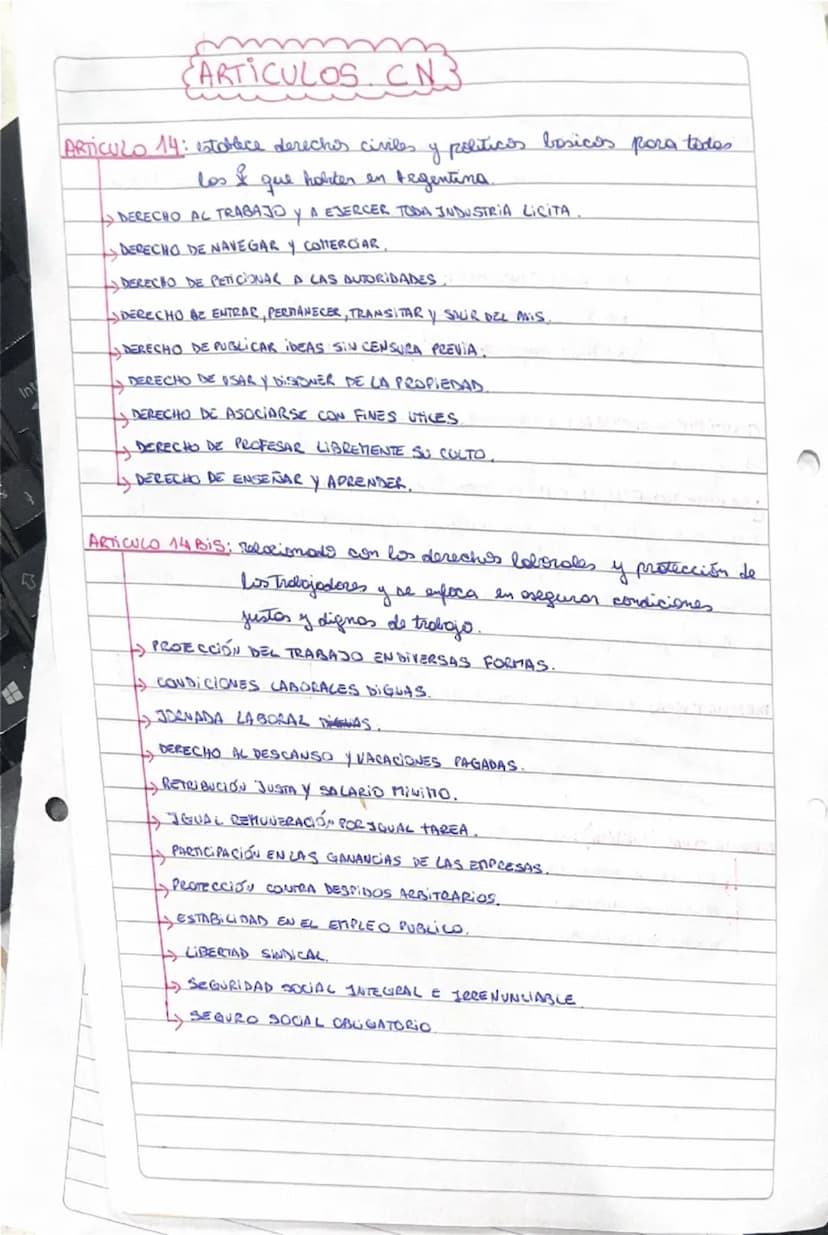 ARTÍCULOS. CN
ARTÍCULO 14: establece derechos civiles y políticos basicos para todos
los que habiten en Argentina.
DERECHO AL TRABAJO Y A EJERCER TODA INDUSTRIA LICITA.
DERECHO DE NAVEGAR Y COMERCIAR.
DERECHO DE PETICIONAR A LAS AUTORIDADES.
DERECHO DE ENTRAR, PERMANECER, TRANSITAR Y SALIR DEL PAIS.
DERECHO DE PUBLICAR IDEAS SIN CENSURA PREVIA.
DERECHO DE USAR Y DISPONER DE LA PROPIEDAD.
DERECHO DE ASOCIARSE CON FINES UTILES.
DERECHO DE PROFESAR LIBREMENTE SU CULTO.
DERECHO DE ENSEÑAR Y APRENDER.
ARTÍCULO 14 BIS: relacionado con los derechos laborales y protección de
los trabajadores y se enfoca en asegurar condiciones
justas y dignas de trabajo.
PROTECCIÓN DEL TRABAJO EN DIVERSAS FORMAS.
CONDICIONES LABORALES DIGNAS.
JORNADA LABORAL
DERECHO AL DESCANSO Y VACACIONES PAGADAS.
RETRIBUCIÓN JUSTA Y SALARIO MINIMO.
IGUAL REMUNERACIÓN POR IGUAL TAREA.
PARTICIPACIÓN EN LAS GANANCIAS DE LAS EMPRESAS.
PROTECCIÓN CONTRA DESPIDOS ARBITRARIOS.
ESTABILIDAD EN EL EMPLEO PUBLICO.
LIBERTAD SINDICAL.
SEGURIDAD SOCIAL INTEGRAL E IRRENUNCIABLE
SEGURO SOCIAL OBLIGATORIO